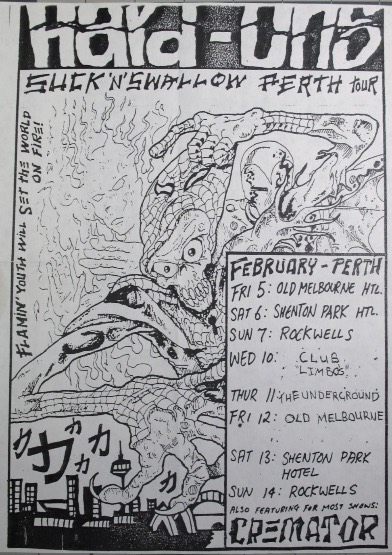 Hard-Ons
SUCK'N'SWALLOW PERTH TOUR
FLAMIN' YOUTH WILL SET THE WORLD
ON FIRE!
FEBRUARY - PERTH
FRI 5: OLD MELBOURNE HTL.
SAT 6: SHENTON PARK HTL.
SUN 7: ROCKWELLS
WED 10: CLUB
"LIMBOS"
THUR 11: THE UNDERGROUND
FRI 12: OLD MELBOURNE
SAT 13: SHENTON PARK
HOTEL
SUN 14: ROCKWELLS
ALSO FEATURING FOR MOST SHOWS:
CREMATOR
カ カ
カ カ
カ